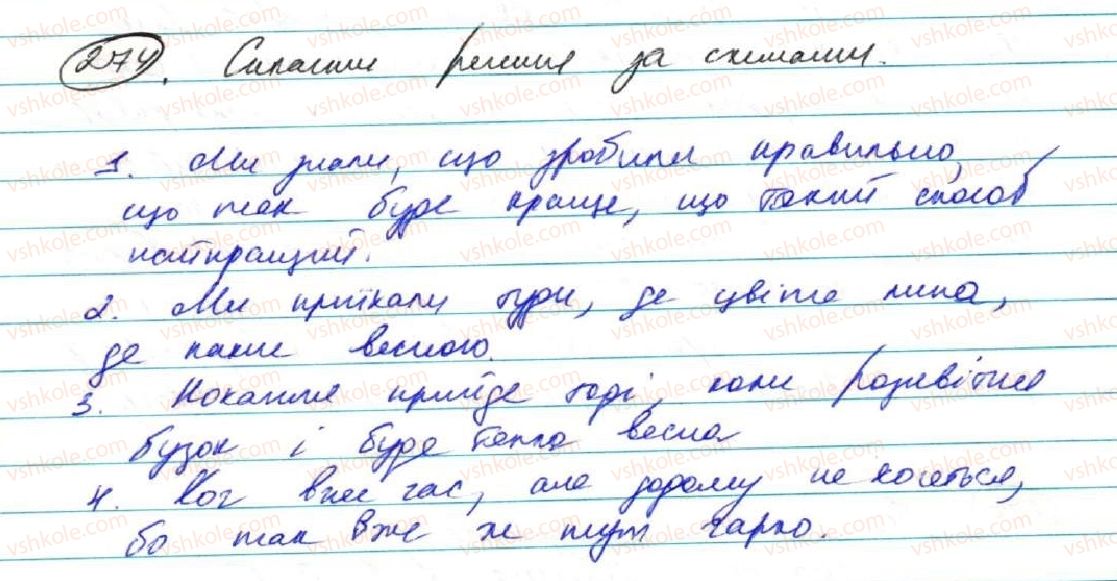 274. Складіть речення за схемами.
1. Ми знали, що зробили правильно,
що так буде краще, що такий спосіб
найкращий.
2. Ми приїхали туди, де цвіте липа,
де пахне весною.
3. Кохання прийде тоді, коли розквітне
бузок і буде тепла весна
4. Хоч вже час, але додому не хочеться,
бо так вже ж тут гарно.